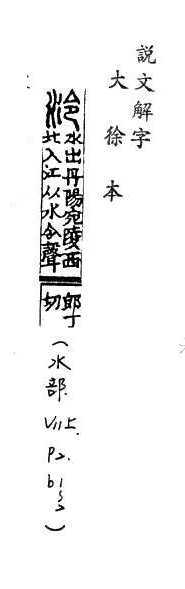 説文解字
大徐本
泠 水出丹陽宛陵西
北入江从水令聲
郎丁
切
(水部. VII上. P2. b )